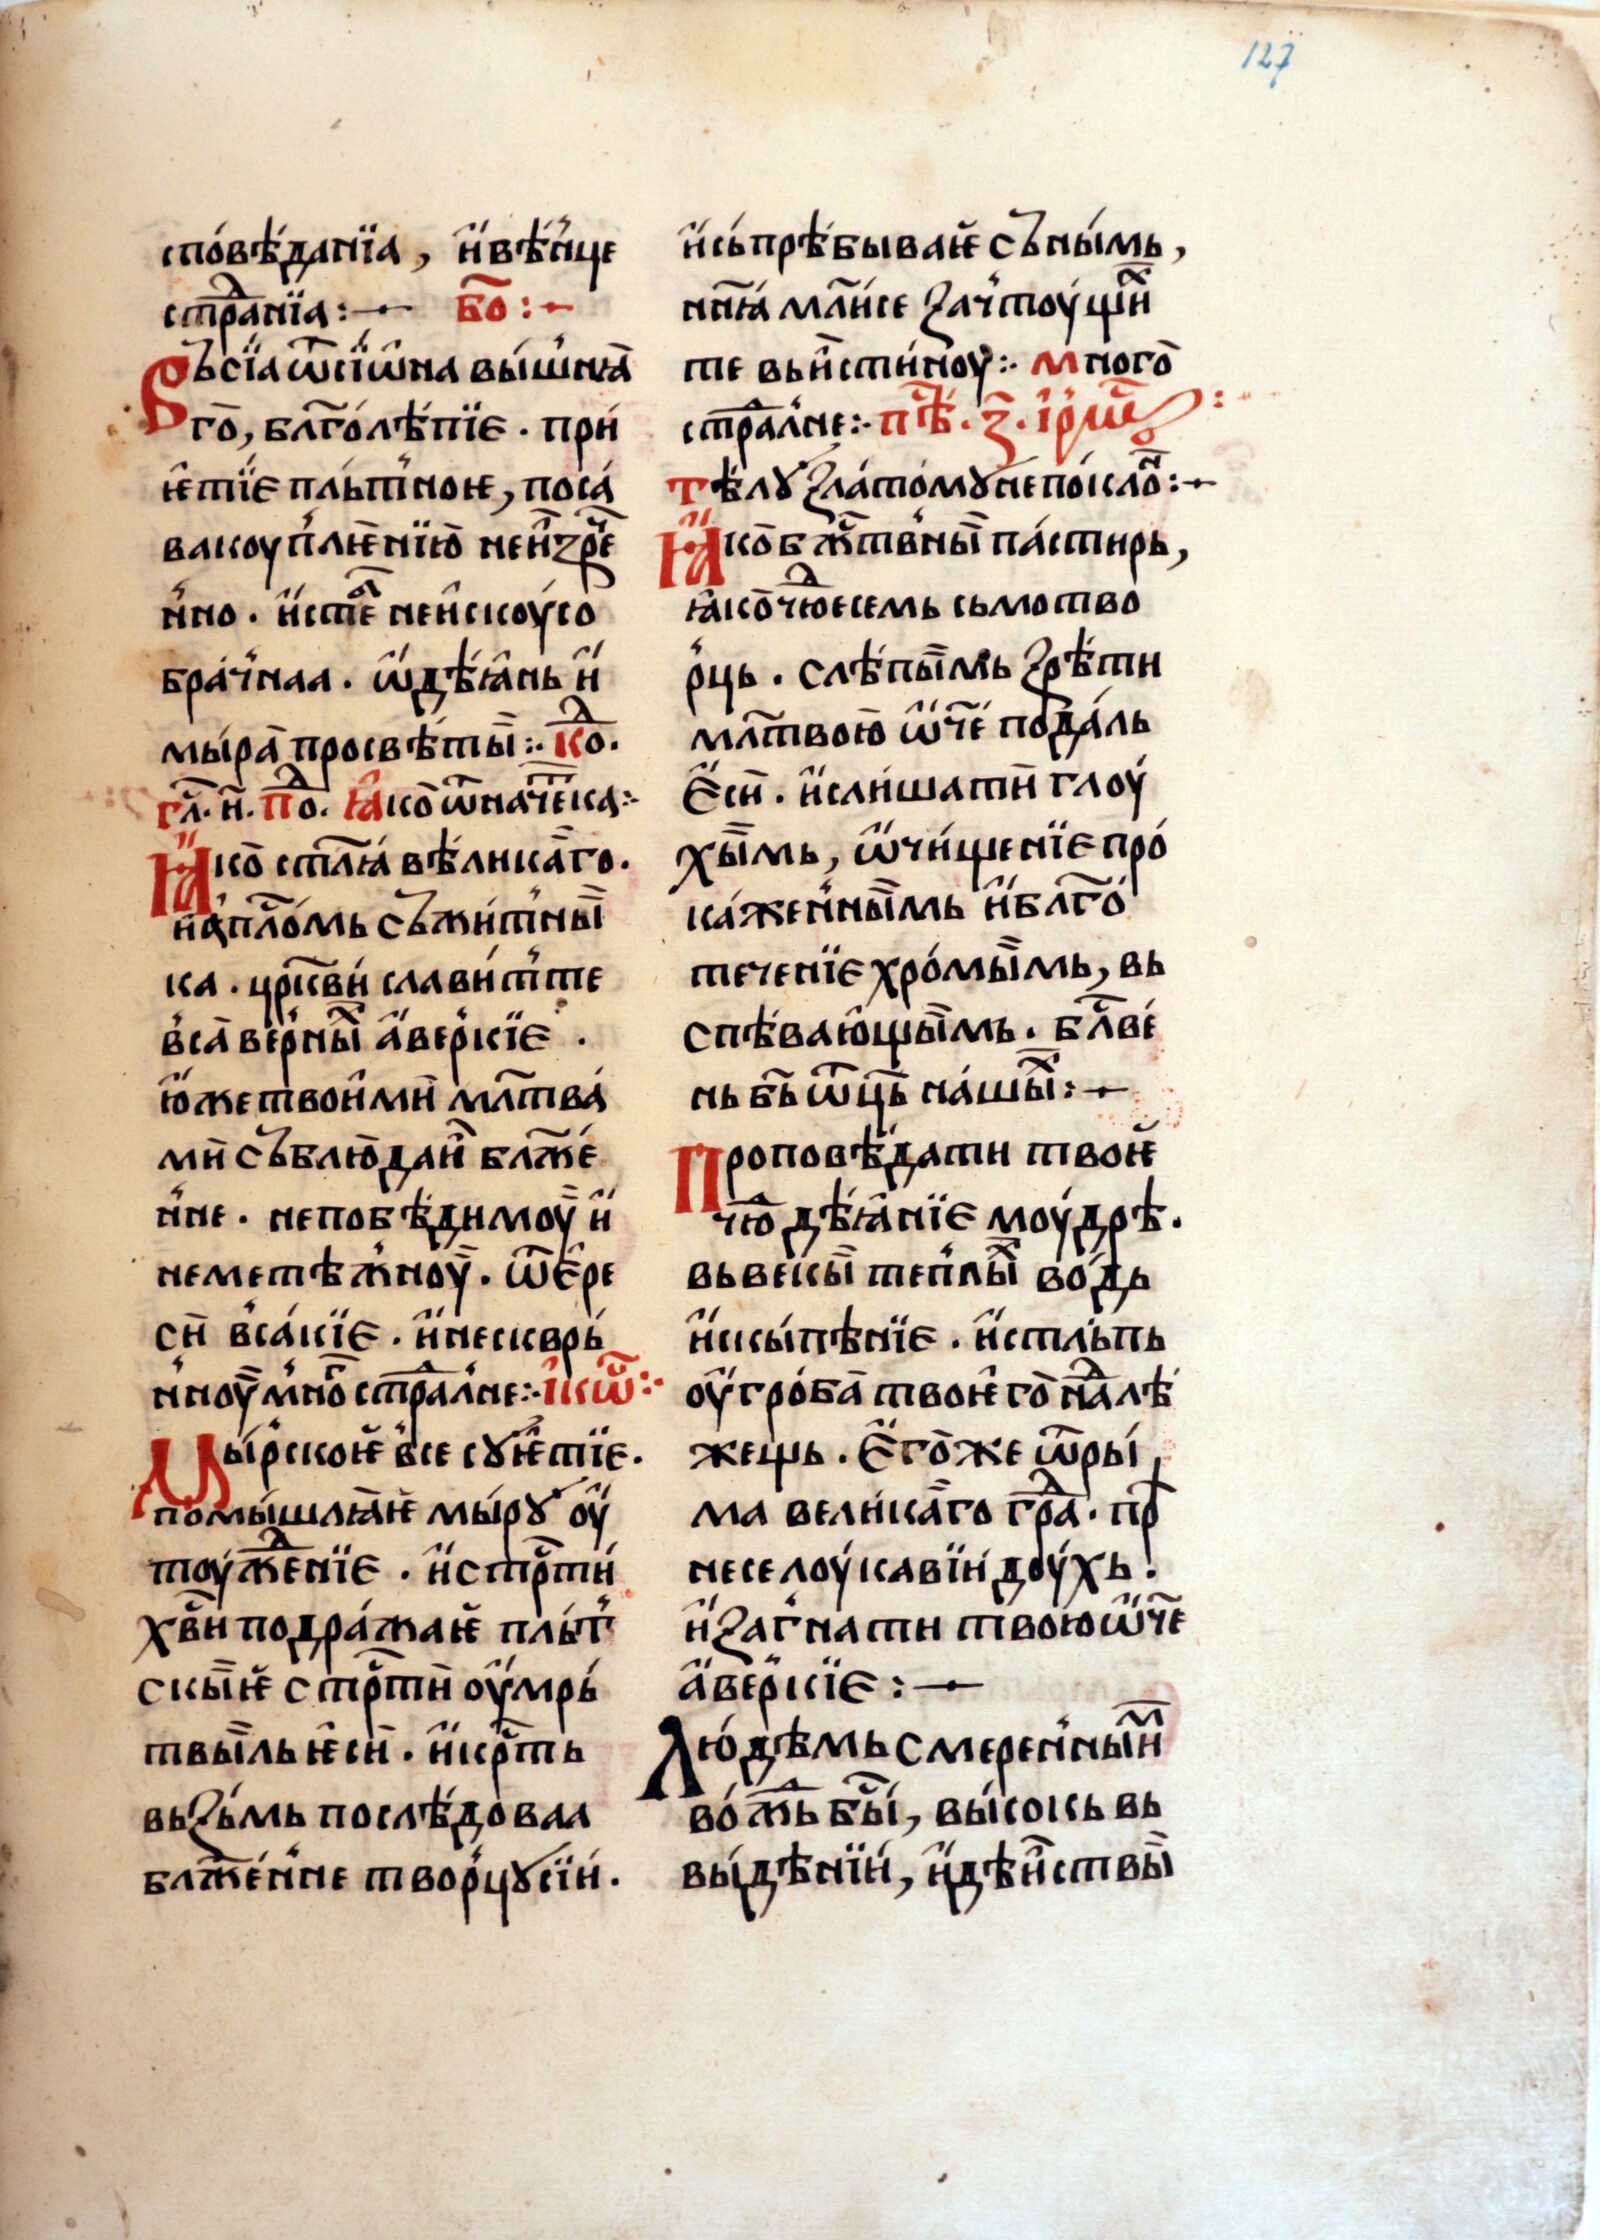 127
спо́вѣ́данїа, и҆вѣ́нце
стрⷣа̑нїа :— бⷪ҇ :—
Въсїа ѿсїѡ҆на вы́шнꙗ
го, блг҇олѣ́пїе . прї
ѥтїе пль́тное, поса́
вакоупле́нїю неи҆ꙁрⷱ҇е
нно . и҆стⷣе неи҆скоу́со
бра́чнаа . ѡ҆дѣ́ꙗнь и҆
мы́ра просвѣ́ты :· кⷣо.
гл҇. и҃. пⷣо. ꙗ҆ко ѿначеⷮка :·
Ꙗ҆ко стл҃ꙗ вѣ́ликаго .
и҆апⷭ҇ломь съжи́тны
ка . црк҇ви́ слави́тте
вса ве́рныⷯ а҆ве́ркїе .
ю҆же твои҆ми мл҃тва́
ми съблю́даи бл҃же́
нне . непобѣ́димоу и҆
неметѣжноу . ѿе҆ре
си вса́кїе . и҆нескврь́
нноу мноⷢ҇ стрⷣалне :· і҆кѡⷭ҇ :·
Мы́рское все су҆ѥтїе .
помы́шлꙗе мы́ру оу҆
тоуждⷣенїе . и҆стрⷭ҇ти́
хв҃и подра́жае пль́т
скые стрⷭ҇ти оу҆мрь́
твыль ѥ҆си . и҆крⷭ҇ть
въꙁь́мь послѣ́довaа
бл҃же́нне творцу сїи́ .
и҆сь́прѣбывае съны́мь,
нн҃ꙗ мл҃и́се ꙁа чтоу́щиⷯ
те вьи́сти́ноу :· много
стрⷣалне :· пⷭ҇ѣ . ꙁ҃ . і҆рмⷭ҇ѡ :
тѣлу ꙁла́то́му непо́клоⷩ :—
Ꙗ҆ко бжⷭ҇твны па́стирь,
ꙗ҆ко чюⷣесемь сьмотво
рць . слѣ́пымь ꙁрѣ́ти
мл҃твою ѡ҆ч҃е пода́ль
е҆си . и҆сли́шати глоу́
хымь, ѡ҆чи́щенїе про́
ка́женнымь и҆блг҇о́
теченїе хро́мымь, вь
спѣ́ваю҆щымь . блⷭ҇ве́
нь бь҃ ѿцъ на́шыⷯ :—
Проповѣ́дати твое
чюⷣ дѣ́ꙗнїе моу́дрѣ .
вьве́кы те́плыⷯ во́дь
и҆скы́пѣнїе . и҆стль́пь
оу҆гро́ба твоѥ҆го наⷣлѣ
жещь . е҆го́же ѿры́
ма вели́каго грⷣа . пр
несе лоу́кавїи доу́хь .
и҆ꙁагнати твою ѡ҆ч҃е
а҆веркїе :—
Лю́дѣмь смеренныиⷨ
во́жⷣь бы́, вы́сокь вь
вы́дѣнїи́, и҆дѣи́ствы